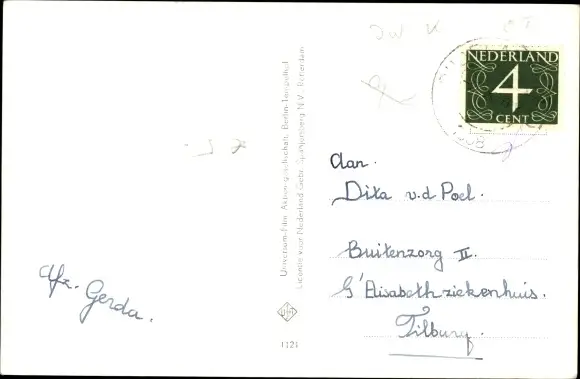 NEDERLAND
4
CENT
Aan.
Dita v.d Poel.
Buitenzorg II.
G'Elisabethziekenhuis.
Tilburg.
Afz. Gerda.
Universum-Film Aktiengesellschaft, Berlin-Tempelhof
Licentie voor Nederland Gebr. Spanjersberg N.V., Rotterdam
1121